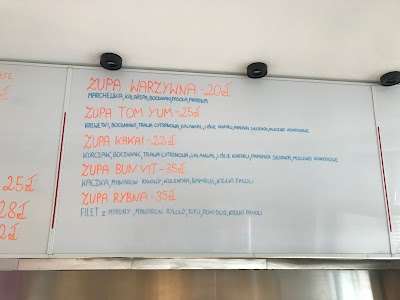 ZUPA WARZYWNA - 20zł
MARCHEWKA, KALAFIOR, BOCZNIAKI, FASOLA, PAPRYKA
ZUPA TOM YUM - 25zł
KREWETKI, BOCZNIAKI, TRAWA CYTRYNOWA, GALANGAL, LIŚCIE KAFIRU, PAPRYKA SŁODKA, MLECZKO KOKOSOWE
ZUPA KAKAI - 22zł
KURCZAK, BOCZNIAKI, TRAWA CYTRYNOWA, GALANGAL, LIŚCIE KAFIRU, PAPRYKA SŁODKA, MLECZKO KOKOSOWE
ZUPA BUN VIT - 35zł
KACZKA, MAKARON RYŻOWY, KOLENDRA, BAMBUS, KIEŁKI FASOLI
25zł
ZUPA RYBNA - 35zł
28zł
FILET z MIRUNY, MAKARON RYŻOWY, TOFU, POMIDOR, KIEŁKI FASOLI
2zł